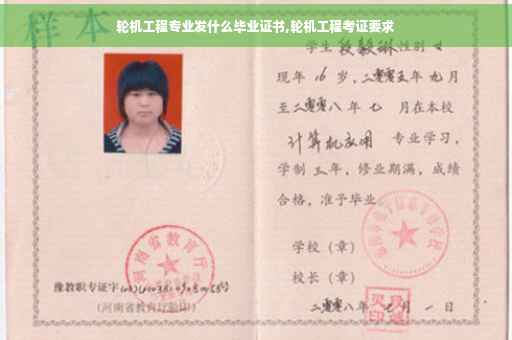 轮机工程专业发什么毕业证书,轮机工程考证要求
样本
学生 段毅琳 性别 女
现年 16 岁,二零零五年 九 月
至二零零八 年 七 月在本校
计算机应用 专业学习,
学制 三 年,修业期满,成绩
合格,准予毕业
学校(章)
校长(章)
二零零八年 七 月 一 日
河南省教育厅
豫教职专证字
(河南省教育厅验印)